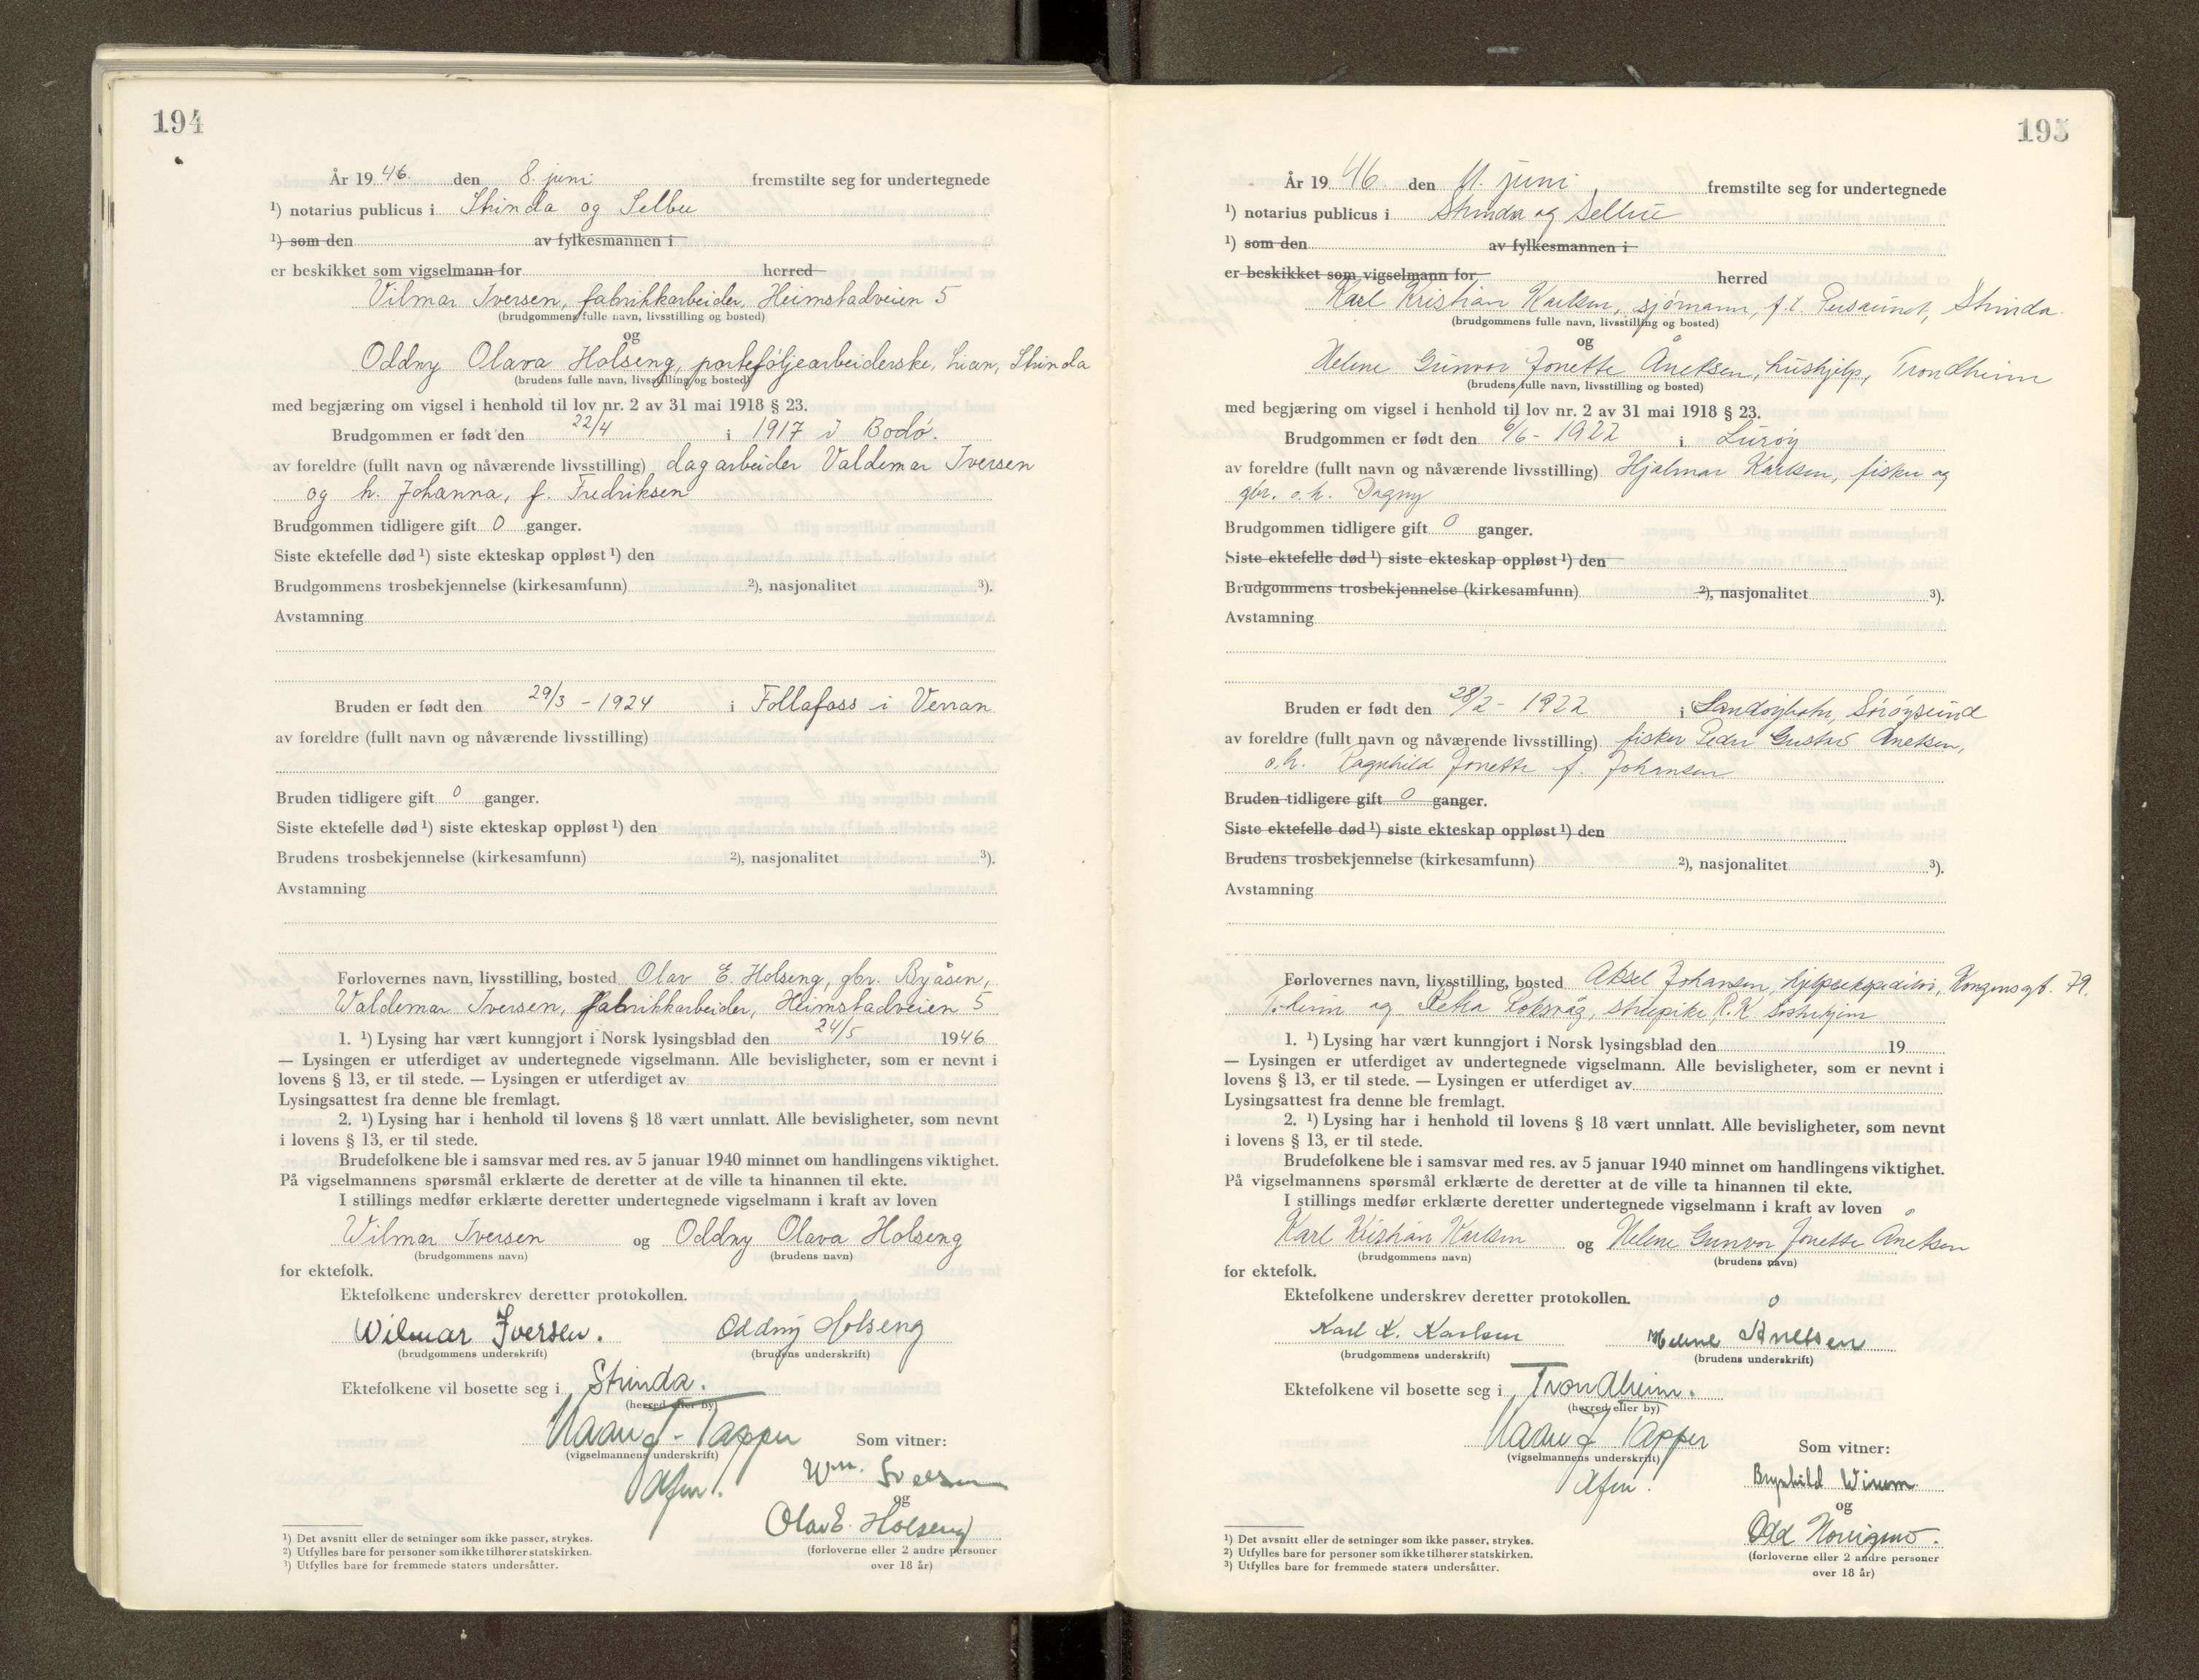 194
År 19 46. den 8. juni fremstilte seg for undertegnede
¹) notarius publicus i Strinda og Selbu
¹) som den av fylkesmannen i
er beskikket som vigselmann for herred
Vilmar Iversen, fabrikkarbeider, Heimstadveien 5
(brudgommens fulle navn, livsstilling og bosted)
og
Oddny Olava Holseng, porteføljearbeiderske, Lian, Strinda
(brudens fulle navn, livsstilling og bosted)
med begjæring om vigsel i henhold til lov nr. 2 av 31 mai 1918 § 23.
Brudgommen er født den 22/4 i 1917 i Bodø.
av foreldre (fullt navn og nåværende livsstilling) dagarbeider Valdemar Iversen
og h. Johanna, f. Fredriksen
Brudgommen tidligere gift 0 ganger.
Siste ektefelle død ¹) siste ekteskap oppløst ¹) den
Brudgommens trosbekjennelse (kirkesamfunn) ²), nasjonalitet ³).
Avstamning
Bruden er født den 29/3 - 1924 i Follafoss i Verran
av foreldre (fullt navn og nåværende livsstilling)
Bruden tidligere gift 0 ganger.
Siste ektefelle død ¹) siste ekteskap oppløst ¹) den
Brudens trosbekjennelse (kirkesamfunn) ²), nasjonalitet ³).
Avstamning
Forlovernes navn, livsstilling, bosted Olav E. Holseng, gbr. Byåsen,
Valdemar Iversen, fabrikkarbeider, Heimstadveien 5
1. ¹) Lysing har vært kunngjort i Norsk lysingsblad den 24/5 1946
— Lysingen er utferdiget av undertegnede vigselmann. Alle bevisligheter, som er nevnt i
lovens § 13, er til stede. — Lysingen er utferdiget av
Lysingsattest fra denne ble fremlagt.
2. ¹) Lysing har i henhold til lovens § 18 vært unnlatt. Alle bevisligheter, som nevnt
i lovens § 13, er til stede.
Brudefolkene ble i samsvar med res. av 5 januar 1940 minnet om handlingens viktighet.
På vigselmannens spørsmål erklærte de deretter at de ville ta hinannen til ekte.
I stillings medfør erklærte deretter undertegnede vigselmann i kraft av loven
Wilmar Iversen og Oddny Olava Holseng
(brudgommens navn) (brudens navn)
for ektefolk.
Ektefolkene underskrev deretter protokollen.
Wilmar Iversen. Oddny Holseng
(brudgommens underskrift) (brudens underskrift)
Ektefolkene vil bosette seg i Strinda.
(herred eller by)
Tapper
(vigselmannens underskrift) Som vitner:
Iversen
og
Olav E. Holseng
(forloverne eller 2 andre personer
over 18 år)
¹) Det avsnitt eller de setninger som ikke passer, strykes.
²) Utfylles bare for personer som ikke tilhører statskirken.
³) Utfylles bare for fremmede staters undersåtter.
195
År 19 46. den 11. juni fremstilte seg for undertegnede
¹) notarius publicus i Strinda og Selbu
¹) som den av fylkesmannen i
er beskikket som vigselmann for herred
Karl Kristian Karlsen, sjømann, f.t. Persaunet, Strinda
(brudgommens fulle navn, livsstilling og bosted)
og
Helene Gunvor Jonette Åneksen, hushjelp, Trondheim
(brudens fulle navn, livsstilling og bosted)
med begjæring om vigsel i henhold til lov nr. 2 av 31 mai 1918 § 23.
Brudgommen er født den 6/6 - 1922 i Lurøy
av foreldre (fullt navn og nåværende livsstilling) Hjalmar Karlsen, fisker og
gbr. o.h. Dagny
Brudgommen tidligere gift 0 ganger.
Siste ektefelle død ¹) siste ekteskap oppløst ¹) den
Brudgommens trosbekjennelse (kirkesamfunn) ²), nasjonalitet ³).
Avstamning
Bruden er født den 28/2 - 1922 i Sørøysund
av foreldre (fullt navn og nåværende livsstilling) fisker Peder Gustav Aneksen,
o.h. Ragnhild Jonette f. Johansen
Bruden tidligere gift 0 ganger.
Siste ektefelle død ¹) siste ekteskap oppløst ¹) den
Brudens trosbekjennelse (kirkesamfunn) ²), nasjonalitet ³).
Avstamning
Forlovernes navn, livsstilling, bosted Aksel Johansen, hjelpeekspeditør, Kongensgt. 79.
T.heim og Petra
1. ¹) Lysing har vært kunngjort i Norsk lysingsblad den 19
— Lysingen er utferdiget av undertegnede vigselmann. Alle bevisligheter, som er nevnt i
lovens § 13, er til stede. — Lysingen er utferdiget av
Lysingsattest fra denne ble fremlagt.
2. ¹) Lysing har i henhold til lovens § 18 vært unnlatt. Alle bevisligheter, som nevnt
i lovens § 13, er til stede.
Brudefolkene ble i samsvar med res. av 5 januar 1940 minnet om handlingens viktighet.
På vigselmannens spørsmål erklærte de deretter at de ville ta hinannen til ekte.
I stillings medfør erklærte deretter undertegnede vigselmann i kraft av loven
Karl Kristian Karlsen og Helene Gunvor Jonette Åneksen
(brudgommens navn) (brudens navn)
for ektefolk.
Ektefolkene underskrev deretter protokollen.
Karl K. Karlsen Helene Åneksen
(brudgommens underskrift) (brudens underskrift)
Ektefolkene vil bosette seg i Trondheim.
(herred eller by)
Tapper
(vigselmannens underskrift) Som vitner:
Brynhild
og
Odd
(forloverne eller 2 andre personer
over 18 år)
¹) Det avsnitt eller de setninger som ikke passer, strykes.
²) Utfylles bare for personer som ikke tilhører statskirken.
³) Utfylles bare for fremmede staters undersåtter.